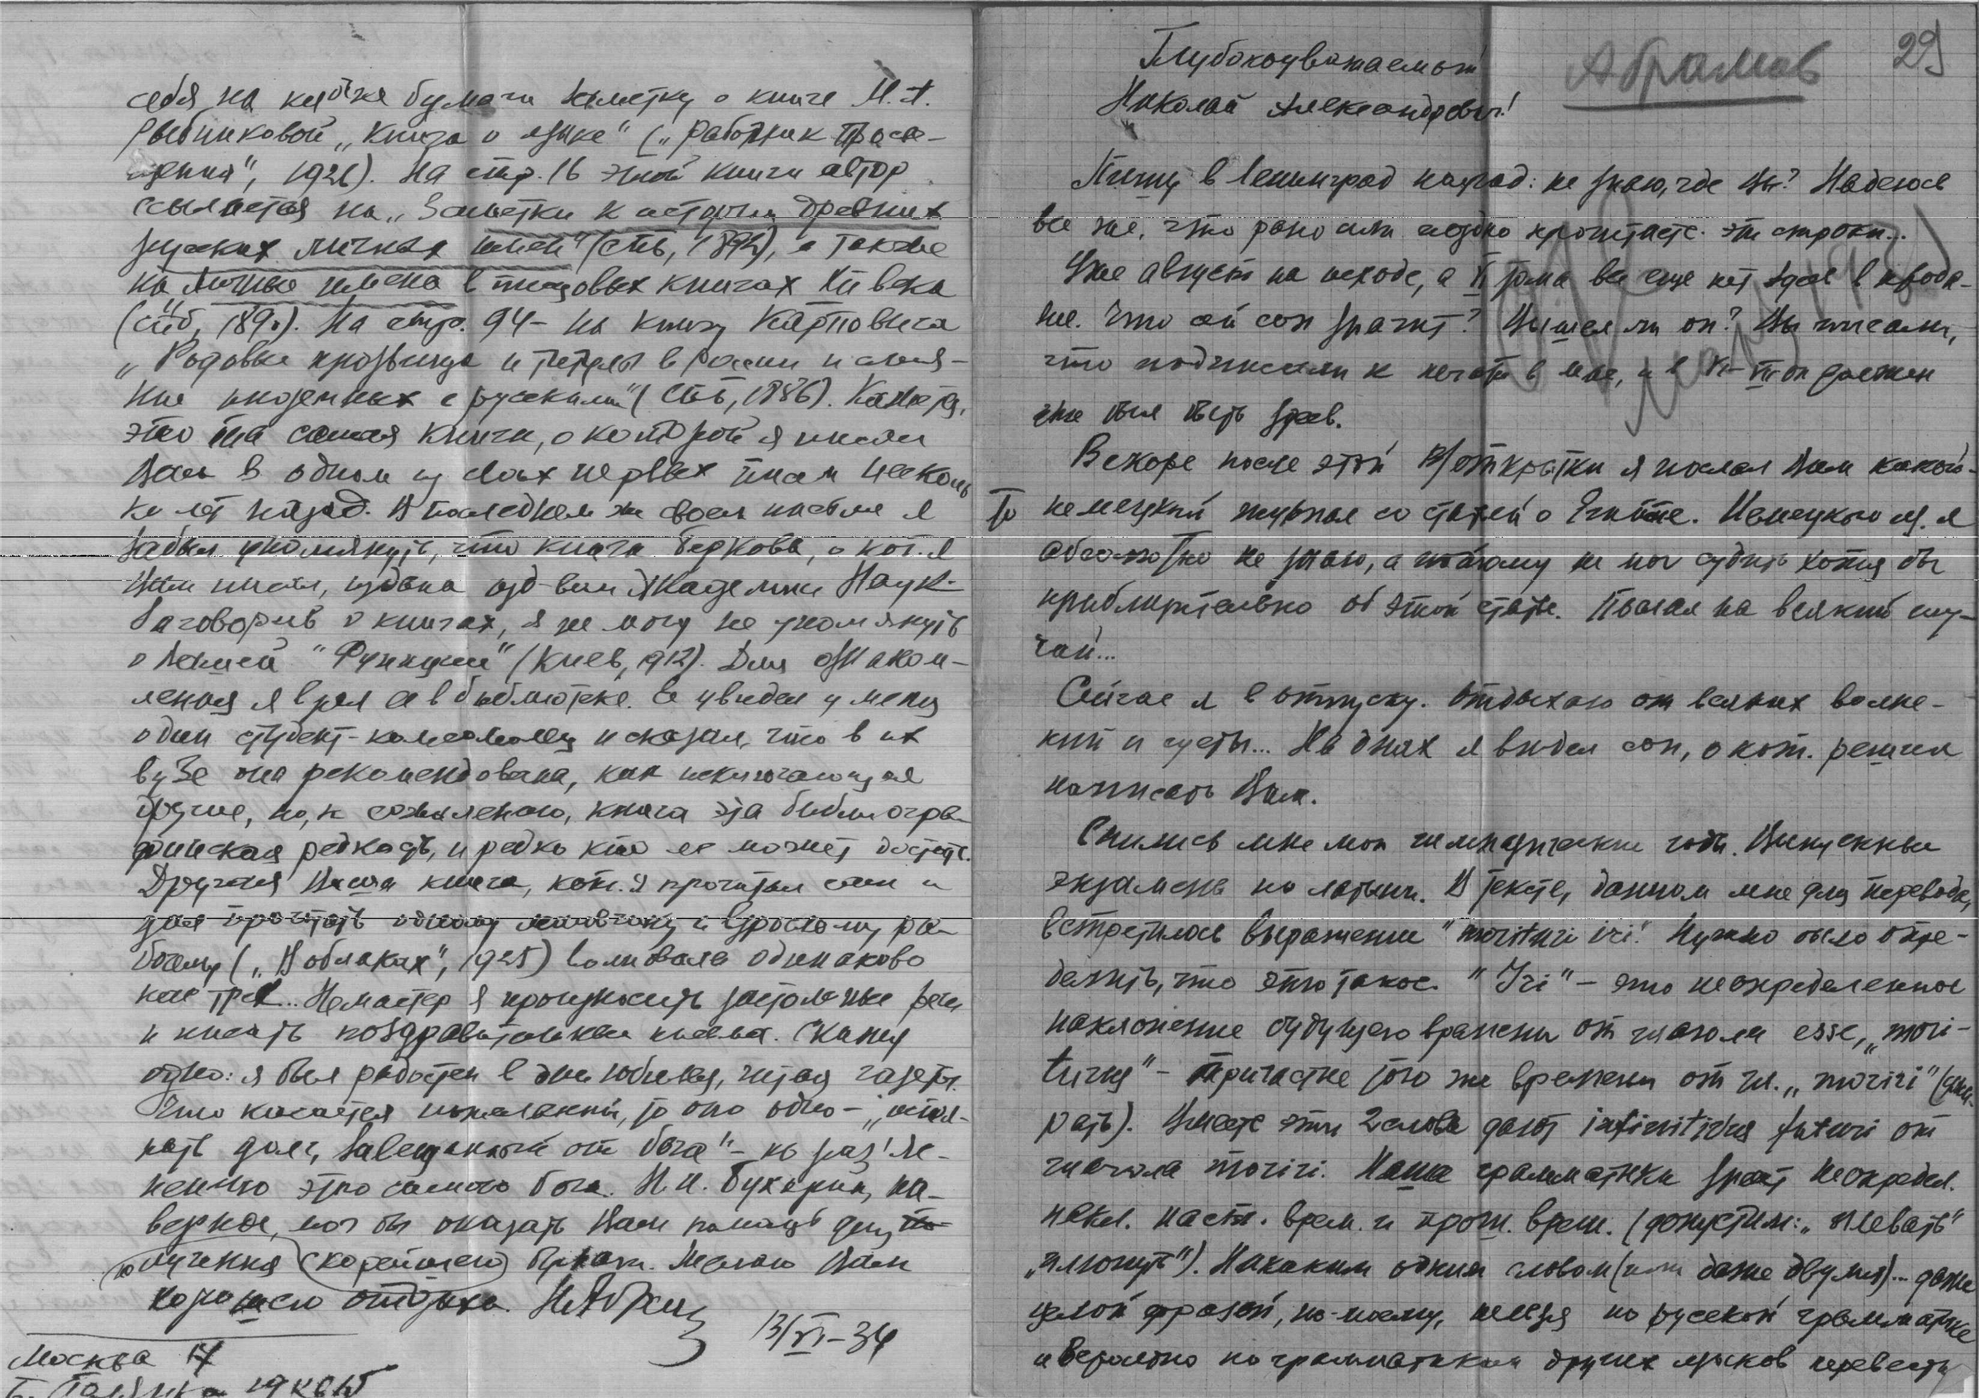 себя на клочке бумаги заметку о книге М.А.
Рыбниковой „Книга о языке" („Работник Просве-
щения", 1926). На стр. 16 этой книги автор
ссылается на „Заметки к истории древних
русских личных имен" (СПб, 1892), а также
на личные имена в писцовых книгах XVI века
(СПб, 189). На стр. 94 - на книгу Карновича
„Родовые прозвища и титулы в России и слия-
ние иноземцев с русскими" (СПб, 1886). Кажется,
это та самая книга, о которой я писал
Вам в одном из своих первых писем несколь
ко лет назад. В последнем же своем письме я
забыл упомянуть, что книга Беркова, о кот. я
Вам писал, издана изд-вом Академии Наук.
Заговорив о книгах, я не могу не упомянуть
о Вашей "Функции" (Киев, 912). Для ознаком-
ления я взял ее в библиотеке. Ее увидел у меня
один студент-комсомолец и сказал, что в их
вузе она рекомендована, как исключающая
другие, но, к сожалению, книга эта библиогра-
фическая редкость, и редко кто ее может достать.
Другая Ваша книга, кот. я прочитал сам и
дал прочитать одному и взрослому ра-
бочему („В облаках", 1925) волновала одинаково
нас трех... Не мастер я произносить застольные речи
и писать поздравительные письма. Скажу
одно: я был радостен в дни юбилея, читая газеты.
Что касается пожеланий, то оно одно - „испол-
нить долг, завещанный от бога" - по раз'яс-
нению этого самого бога. Н.И. Бухарин, на-
верное, мог бы оказать Вам помощь для
получения скорейшего Желаю Вам
хорошего отдыха. Н. Абрам
13/VI-34
Москва 17
29
Абрамов
Глубокоуважаемый
Николай Александрович!
Пишу в Ленинград наугад: не знаю, где Вы? Надеюсь
все же, что рано или поздно прочитаете эти строки...
Уже август на исходе, а II тома все еще нет здесь в прода-
же. Что сей сон значит? Вышел ли он? Вы писали,
что подписали к печати в мае, и в VI-VII он должен
уже был быть здесь.
Вскоре после этой открытки я послал Вам какой-
то немецкий журнал со статьей о Египте. Немецкого яз. я
абсолютно не знаю, а потому не мог судить хотя бы
приблизительно об этой статье. Послал на всякий слу-
чай...
Сейчас я в отпуску. Отдыхаю от всяких волне-
ний и суеты... На днях я видел сон, о кот. решил
написать Вам.
Снились мне мои гимназические годы. Выпускные
экзамены по латыни. В тексте, данном мне для перевода,
встретилось выражение "morituri iri". Нужно было опре-
делить, что это такое. "Iri" - это неопределенное
наклонение будущего времени от глагола esse, „mori-
turus" - причастие того же времени от гл. „moriri" (уми-
рать). Вместе эти 2 слова дают infinitivus futuri от
глагола moriri. Наша грамматика знает неопредел.
накл. наст. врем. и прош. врем. (допустим: „плевать"
„плюнуть"). Никаким одним словом (или даже двумя)... даже
целой фразой, по-моему, нельзя по русской грамматике
и вероятно по грамматикам других языков перевести